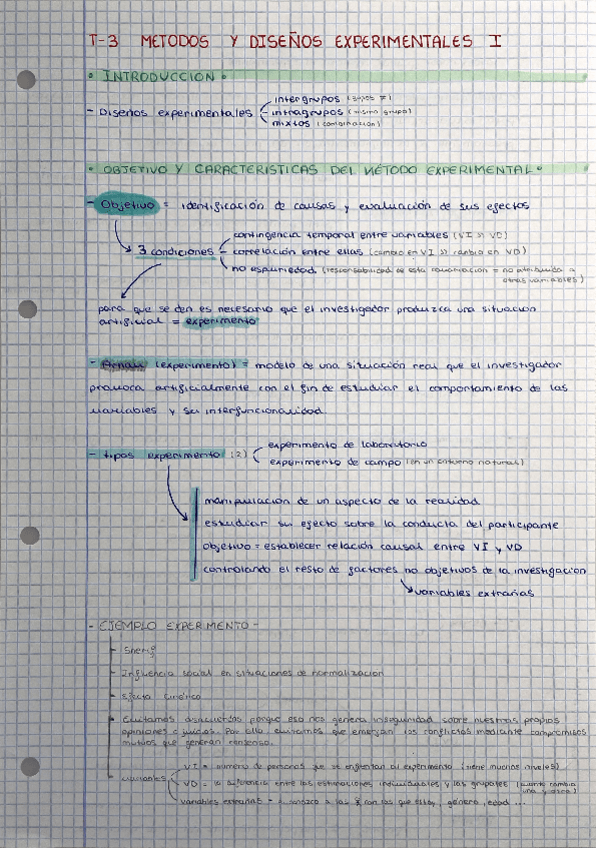 T-3 METODOS Y DISEÑOS EXPERIMENTALES I
• INTRODUCCION •
- Diseños experimentales
intergrupos (grupos ≠)
intragrupos (mismo grupo)
mixtos (combinación)
• OBJETIVO Y CARACTERISTICAS DEL METODO EXPERIMENTAL •
- Objetivo = identificación de causas y evaluación de sus efectos
3 condiciones
contingencia temporal entre variables (VI → VD)
correlación entre ellas (cambio en VI → cambio en VD)
no espuriedad (responsabilidad de esta covariación = no atribuida a
otras variables)
para que se den es necesario que el investigador produzca una situacion
artificial = experimento
- Arnau (experimento) = modelo de una situación real que el investigador
provoca artificialmente con el fin de estudiar el comportamiento de las
variables y su interfuncionalidad
- tipos experimento (2)
experimento de laboratorio
experimento de campo (en un entorno natural)
manipulación de un aspecto de la realidad
estudiar su efecto sobre la conducta del participante
objetivo = establecer relación causal entre VI y VD
controlando el resto de factores no objetivos de la investigacion
variables extrañas
- EJEMPLO EXPERIMENTO -
Sherif
Influencia social en situaciones de normalizacion
Efecto
Evitamos desacuerdo porque eso nos genera inseguridad sobre nuestras propias
opiniones o juicios. Por ello evitamos que emerjan los conflictos mediante compromisos
mutuos que generan consenso.
variables
VI = número de personas que se enfrentan al experimento (tiene muchos niveles)
VD = la diferencia entre las estimaciones individuales y las grupales (cuanto cambia
una y otra)
variables extrañas = si conozco a las con las que estoy, genero, edad ...